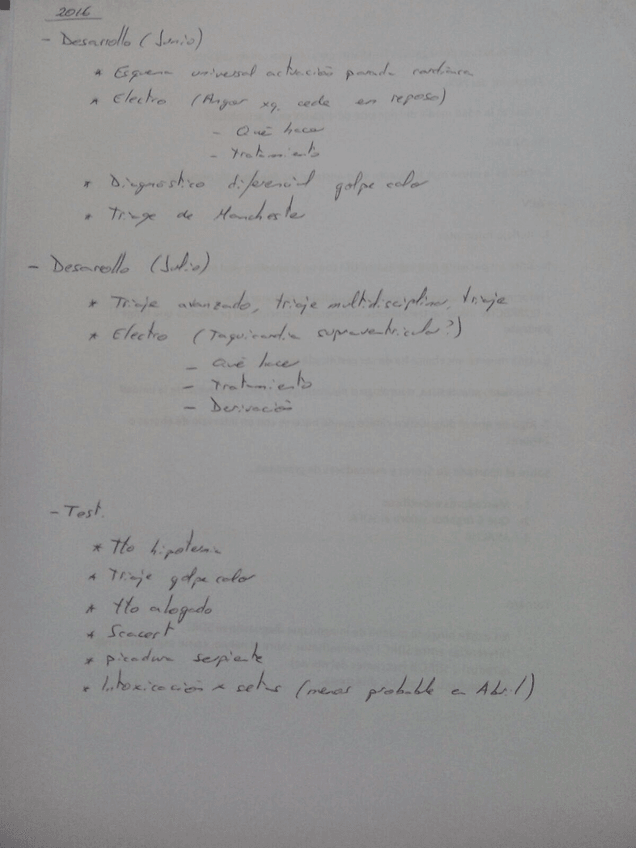 2016
- Desarollo (Junio)
* Esquema universal actuación parada cardiaca
* Electro (Angor xq. cede en reposo)
- Qué hacer
- Tratamiento
* Diagnóstico diferencial golpe calor
* Triage de Manchester
- Desarollo (Julio)
* Triaje avanzado, triaje multidisciplinar, triaje
* Electro (Taquicardia supraventricular?)
- Qué hacer
- Tratamiento
- Derivación
- Test.
* Tto hipotermia
* Triaje golpe calor
* Tto ahogado
* Scacest
* picadura serpiente
* Intoxicación x setas (menos probable en Abril)